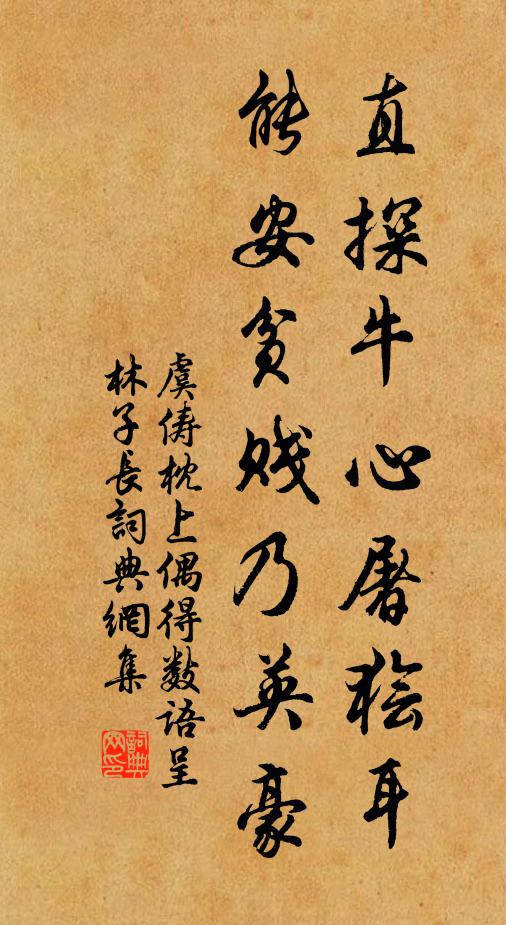 直探牛心屠狯耳
能安贫贱乃英豪
虞俦枕上偶得数语呈
林子長詞典網集
詞典網印